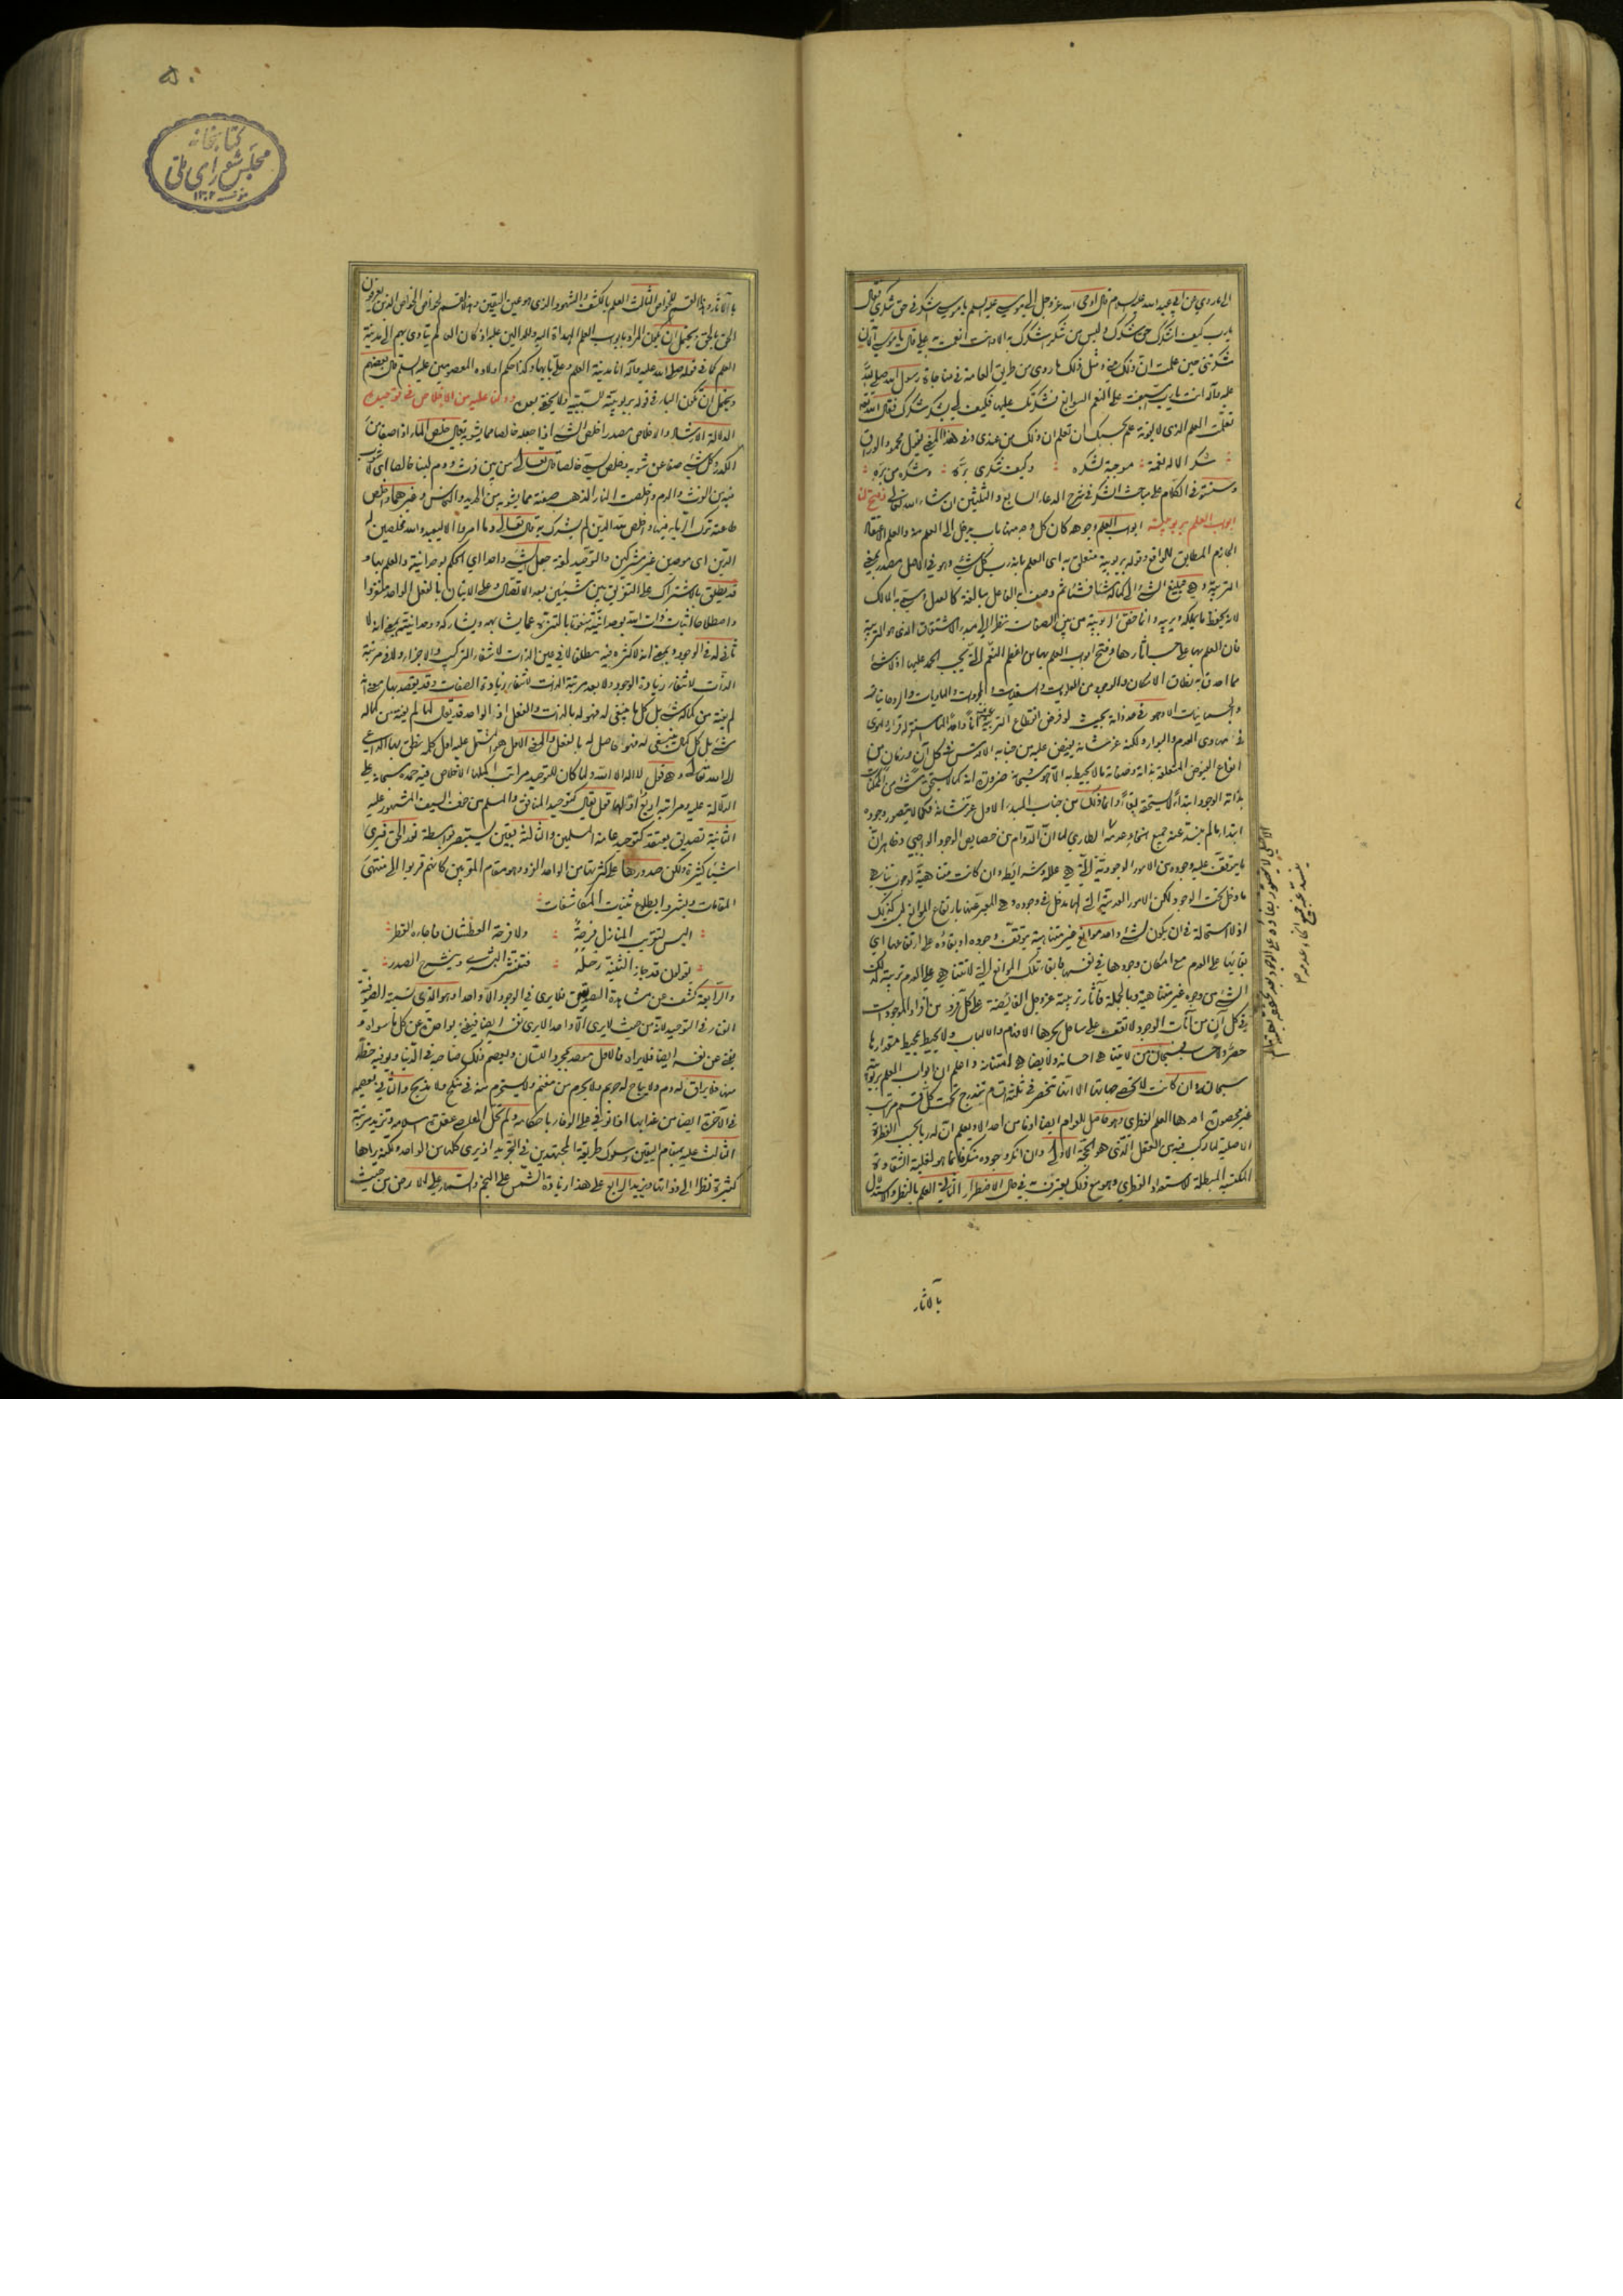 الى ما روي عن ابي عبد الله عليه السلام قال اوحى الله عز وجل الى موسى عليه السلم يا موسى اشكرني حق شكري فقال
يا رب كيف اشكرك حق شكرك وليس من شكر اشكرك به الا وانت انعمت به علي قال يا موسى الان
شكرتني حين علمت ان ذلك مني ومثل ذلك ما روي من طريق العامة في مناجاة رسول الله صلى الله
عليه وآله انت يا رب اسبغت علي النعم السوابغ فشكرتك عليها فكيف لي بشكر شكرك فقال الله تعالى
تعلمت العلم الذي لا يفوته علم بحسبك ان تعلم ان ذلك من عندي وفي هذا المعنى يقول محمود الوراق
شكر الاله نعمة موجبة لشكره وكيف شكري بره وشكره من بره
وسنستوفي الكلام على مباحث الشكر في شرح الدعاء السابع والثلثين ان شاء الله تعالى وفتح لنا
ابواب العلم بربوبيته ابواب العلم وجوهه كان كل وجه منها باب يدخل الى العلم منه والعلم الاعتقاد
الجازم المطابق للواقع وقوله بربوبيته متعلق به اي العلم بانه رب كل شيء وهو في الاصل مصدر بمعنى
التربية وهي تبليغ الشيء الى كماله شيئا فشيئا ثم وصف به الفاعل مبالغة كالعدل وسمي به المالك
لانه يحفظ ما يملكه ويربيه وانما خص الربوبية من بين الصفات نظرا الى مبدء الاشتقاق الذي هو التربية
فان العلم بها على حسب اثارها وفتح ابواب العلم بها من اعظم النعم التي يجب الحمد عليها اذ لا شيء
مما احدق به نطاق الامكان والوجود من العلويات والسفليات والمجردات والماديات والروحانيات
والجسمانيات الا وهو في حد ذاته بحيث لو فرض انقطاع التربية عنه آنا واحدا لما استقر له قرار وهوى
في مهاوي العدم والبوار ولكنه عز شانه يفيض عليه من جنابه الاقدس في كل آن وزمان من
انواع الفيوض المتعلقة بذاته وصفاته ما لا يحيط به الا هو سبحانه ضرورة انه كما لا يستحق شيء من الممكنات
بذاته الوجود ابتداء لا يستحقه بقاء وانما ذلك من جناب المبدء الاول عز شانه فكما لا يتصور وجوده
ابتداء ما لم ينسد عنه جميع انحاء عدمه الطاري لما ان الدوام من خصايص الوجود الواجبي وظاهر ان
ما يتوقف عليه وجوده من الامور الوجودية التي هي علله وشرائطه وان كانت متناهية لوجوب تناهي
ما دخل تحت الوجود لكن الامور العدمية التي لها مدخل في وجوده وهي المعبر عنها بارتفاع الموانع ليست كذلك
اذ لا استحالة في ان يكون لشيء واحد موانع غير متناهية يتوقف وجوده او بقاؤه على ارتفاعها اي
بقائها على العدم مع امكان وجودها في نفسها فابقاء تلك الموانع التي لا تتناهى على العدم تربية لذلك
الشيء من وجوه غير متناهية وبالجملة فآثار تربيته عز وجل الفائضة على كل فرد من افراد الموجودات
في كل آن من آنات الوجود لا تقف على ساحل بحرها الافهام والالباب ولا يحيط بمحيط مقدارها
حصر ولا حساب فسبحان من لا يتناهى احسانه ولا يضاهى امتنانه واعلم ان ابواب العلم بربوبيته
سبحانه وان كانت لا تحصى جهاتها الا انها تنحصر في ثلثة اقسام يندرج تحت كل قسم مراتب
غير محصورة احدها العلم الفطري وهو حاصل للعوام ايضا اذ ما من احد الا ويعلم ان له ربا بحسب الفطرة
الاصلية لما ركب فيه من العقل الذي هو الحجة الاولى وان انكر وجوده منكر فانما هو لغلبة الشقاوة
المكتسبة المبطلة لاستعداد الفطري وهو مع ذلك يعترف به في حال الاضطرار الثاني العلم بالنظر والاستدلال
الاصلي لا يتصور بقاؤه على الوجود بعد تحققه بعلته ما لم
ينسد عنه جميع انحاء عدمه
بالآثار
۵۰
کتابخانه
مجلس شورای ملی
۱۳۰۲
بالآثار وهذا القسم للخواص الثالث العلم بالكشف والشهود الذي هو عين اليقين وهذا القسم لخواص الخواص الذين يعرفون
الحق بالحق ويحتمل ان يكون المراد بابواب العلم الهداة اليه والدالين عليه اذ كان العالم يتأدى بهم الى مدينة
العلم كما في قوله صلى الله عليه وآله انا مدينة العلم وعلي بابها وكذا حكم اولاده المعصومين عليهم السلم قال بعضهم
ويحتمل ان تكون الباء في قوله بربوبيته للسببية ولا يخفى بعده ودلنا عليه من الاخلاص في توحيده
الدلالة الارشاد والاخلاص مصدر اخلص الشيء اذا جعله خالصا مما يشوبه يقال خلص الماء اذا صفا من
الكدر وكل شيء صفا عن شوبه وخلص يسمى خالصا قال تعالى من بين فرث ودم لبنا خالصا اي لا شوب
فيه من الفرث والدم واخلصت النار الذهب صفته مما يشوبه من الحديد والنحاس وغيرهما واخلص
طاعته ترك الرياء فيها واخلص لله الدين لم يشرك به قال تعالى وما امروا الا ليعبدوا الله مخلصين له
الدين اي موحدين غير مشركين والتوحيد لغة جعل الشيء واحدا اي الحكم بوحدانيته والعلم بها و
قد يطلق بالاشتراك على التفريق بين شيئين بعد الاتصال وعلى الاتيان بالفعل الواحد منفردا
واصطلاحا اثبات ذات الله بوحدانيته منعوتا بالتنزه عما يشابهه ويشاركه ووحدانيته بمعنى انه لا
ثاني له في الوجود وبمعنى انه لا كثرة فيه مطلقا لا في عين الذات لانتفاء التركيب والاجزاء ولا في مرتبة
الذات لانتفاء زيادة الوجود ولا بعد مرتبة الذات لانتفاء زيادة الصفات وقد يقصد بها معنى انه
لم يفته من كماله شيء بل كل ما ينبغي له فهو له بالذات والفعل اذ الواحد قد يقال لما لم يفته من كماله
شيء بل كل كمال ينبغي له فهو حاصل له بالفعل والمعنى الاول هو المشتمل عليه اول كلمة نطق بها الداعي
الى الله تعالى وهو قول لا اله الا الله ولما كان للتوحيد مراتب اكملها الاخلاص فيه حمده سبحانه على
الدلالة عليه ومراتبه اربع اولها قول يقال كتوحيد المنافق والمسلم من خوف السيف المشهور عليه
الثانية تصديق يعتقد كتوحيد عامة المسلمين والثالثة يقين يستبصر بواسطة نور الحق فيرى
اشياء كثيرة ولكن صدورها على كثرتها من الواحد الفرد وهو مقام المقربين كانهم قربوا الى منتهى
المقامات وبشروا بطلوع ثنيات المكاشفات
اليس لتقريب المنازل فرحة ولا فرحة العطشان فاجاءه القطر
يقولون قد جاز الثنية رحله فتفتر البشرى وينشرح الصدر
والرابعة كشف عن مشاهدة الصديقين فلا يرى في الوجود الا واحدا وهو الذي تسميه الصوفية
الفناء في التوحيد لانه من حيث لا يرى الا واحدا لا يرى نفسه ايضا فيفنى بواحد عن كل ما سواه و
يفنى عن نفسه ايضا فلا يراه فالاول موحد بمجرد اللسان ويعصم ذلك صاحبه في الدنيا ويوفيه حظه
منها فلا يراق له دم ولا يباح له حريم ولا يحرم من مغنم ولا يستحرم منه في نكح ولا بذبح والثاني يعصمه
في الآخرة ايضا من عذابها اذا توفي على الوفاء باحكامه ولم تحل المعاصي عقدة اسلامه وتزيد مرتبة
الثالث عليه بمقام اليقين وسلوك طريقة المجتهدين في التجريد اذ يرى كلها من الواحد ولكنه يراها
كثيرة نظرا الى ذواتها ويزيد الرابع على هذا زيادة الشمس على النجم والسماء على الارض من حيث